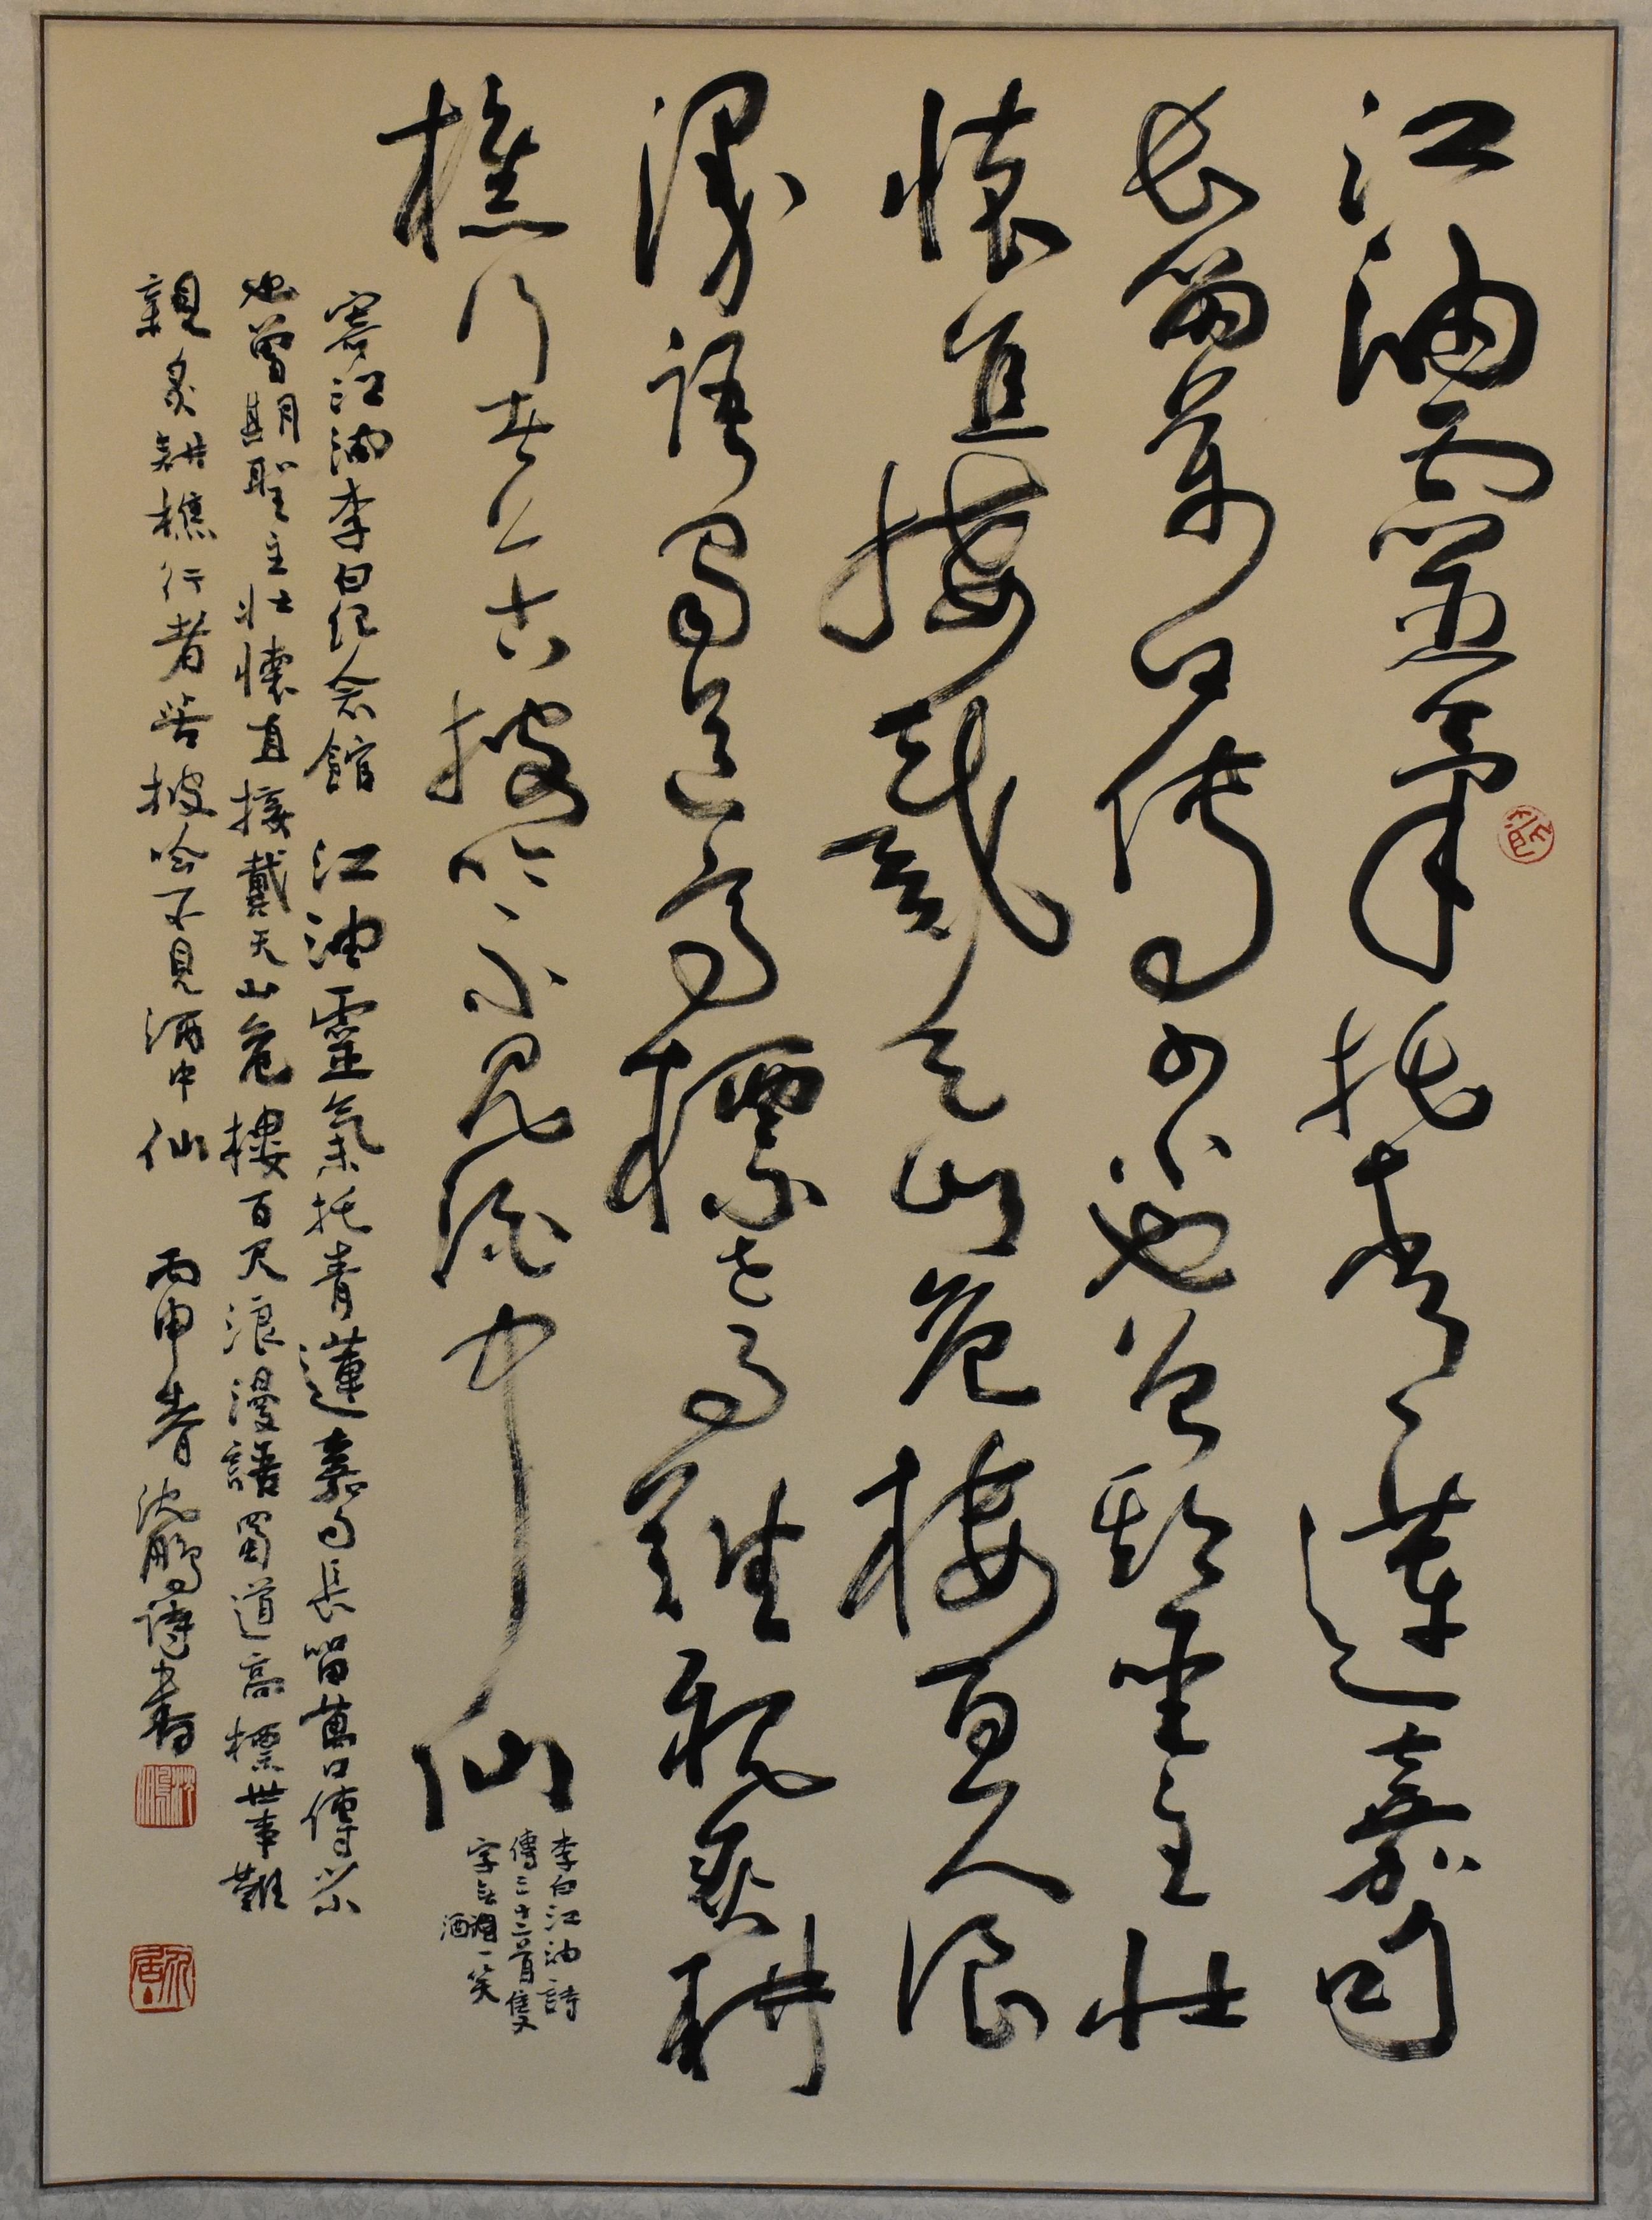 江油靈氣托青蓮嘉句
長留萬口傳少也曾期聖主壯
懷直接戴天山危樓百尺浪
漫語蜀道高標世事難親炙耕
樵行者苦披吟不見酒中仙
李白江油詩
傳三十二首隻
字無酒一笑
酒
寄江油李白紀念館 江油靈氣托青蓮嘉句長留萬口傳少
也曾期聖主壯懷直接戴天山危樓百尺浪漫語蜀道高標世事難
親炙耕樵行者苦披吟不見酒中仙 丙申春沈鵬詩書
沈鵬